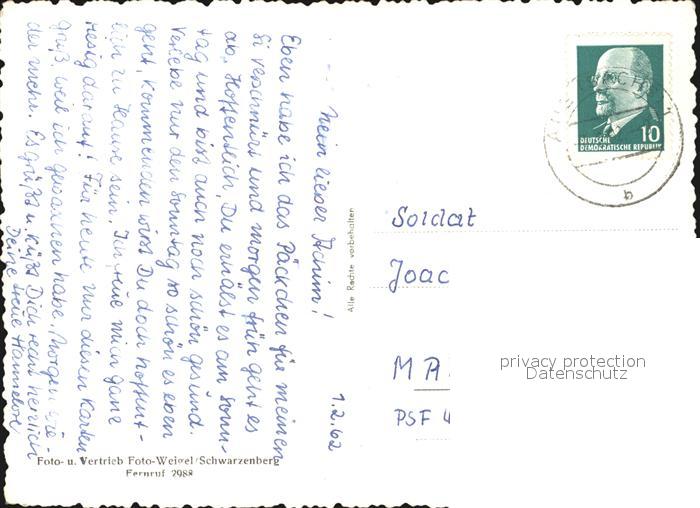 1.2.62
Mein lieber Achim!
Eben habe ich das Päckchen für meinen
Si verschnürt und morgen früh geht es
ab. Hoffentlich, Du erhälst es am Sonn-
tag und bist auch noch schön gesund.
Verlebe nur den Sonntag so schön es eben
geht, kommenden wirst Du doch hoffent-
lich zu Hause sein. Ich freue mich ganz
riesig darauf! Für heut nur diesen Karten
gruß, weil ich gewaschen habe. Morgen wie-
der mehr. Es grüßt u. küßt Dich recht herzlich
Deine treue Hannelore
Alle Rechte vorbehalten
Foto- u. Vertrieb Foto-Weigel/Schwarzenberg
Fernruf 2988
10
DEUTSCHE
DEMOKRATISCHE REPUBLIK
b
Soldat
Joac
MA
PSF 4
privacy protection
Datenschutz